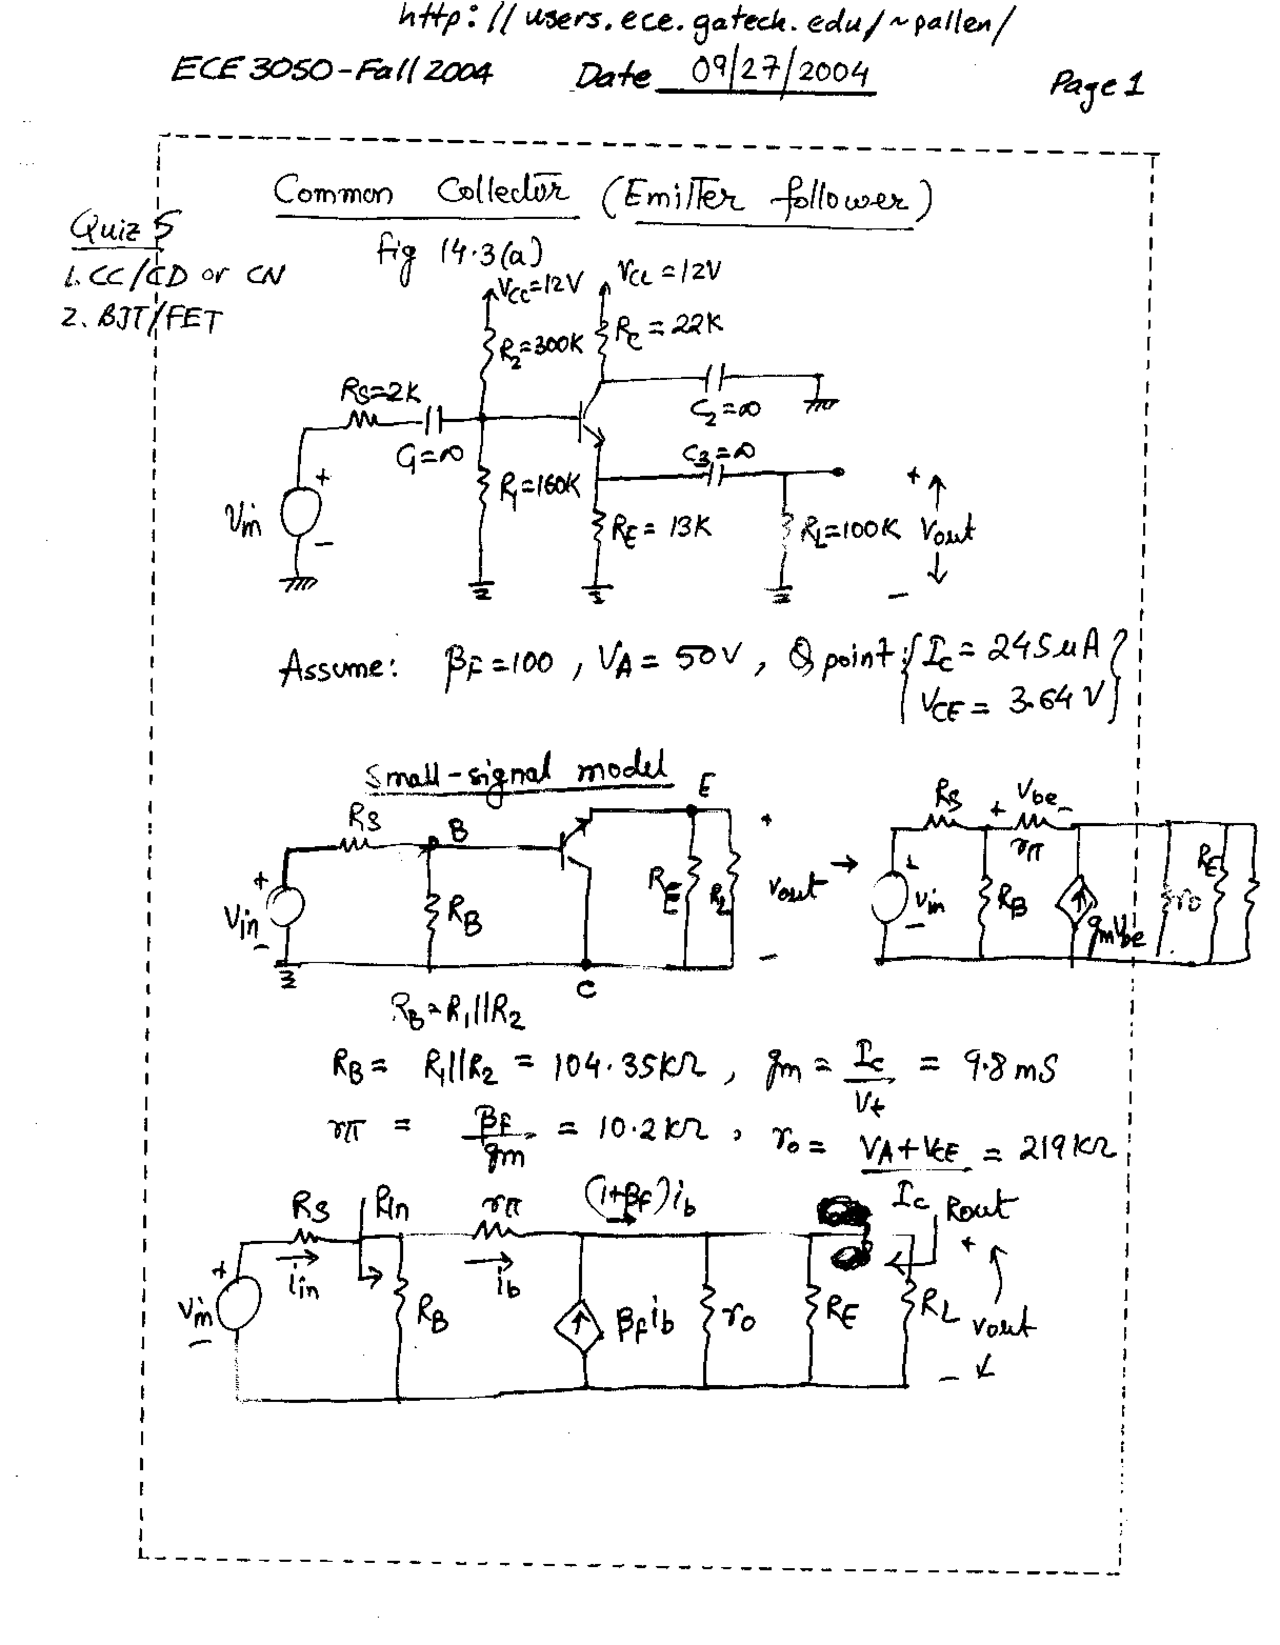 http://users.ece.gatech.edu/~pallen/
ECE 3050-Fall 2004 Date 09/27/2004 Page 1
Common Collector (Emitter follower)
Quiz 5
fig 14.3(a)
1. CC/CD or CN
2. BJT/FET
VCC=12V VCC=12V
R2=300K RC=22K
RS=2K
C2=∞
C1=∞ C3=∞
R1=160K
vin + -
RE=13K RL=100K vout + -
Assume: βF=100, VA=50V, Q point {IC=245μA
VCE=3.64V}
Small-signal model
RS B E + RS + vbe -
rπ
vin + - RB RE RL vout → vin + - RB gmvbe ro RE
- C
RB=R1||R2
RB = R1||R2 = 104.35KΩ, gm = IC/Vt = 9.8mS
rπ = βF/gm = 10.2KΩ, ro = (VA+VCE)/IC = 219KΩ
RS Rin rπ (1+βF)ib Rout
iin ib
vin + - RB βFib ro RE RL vout + -